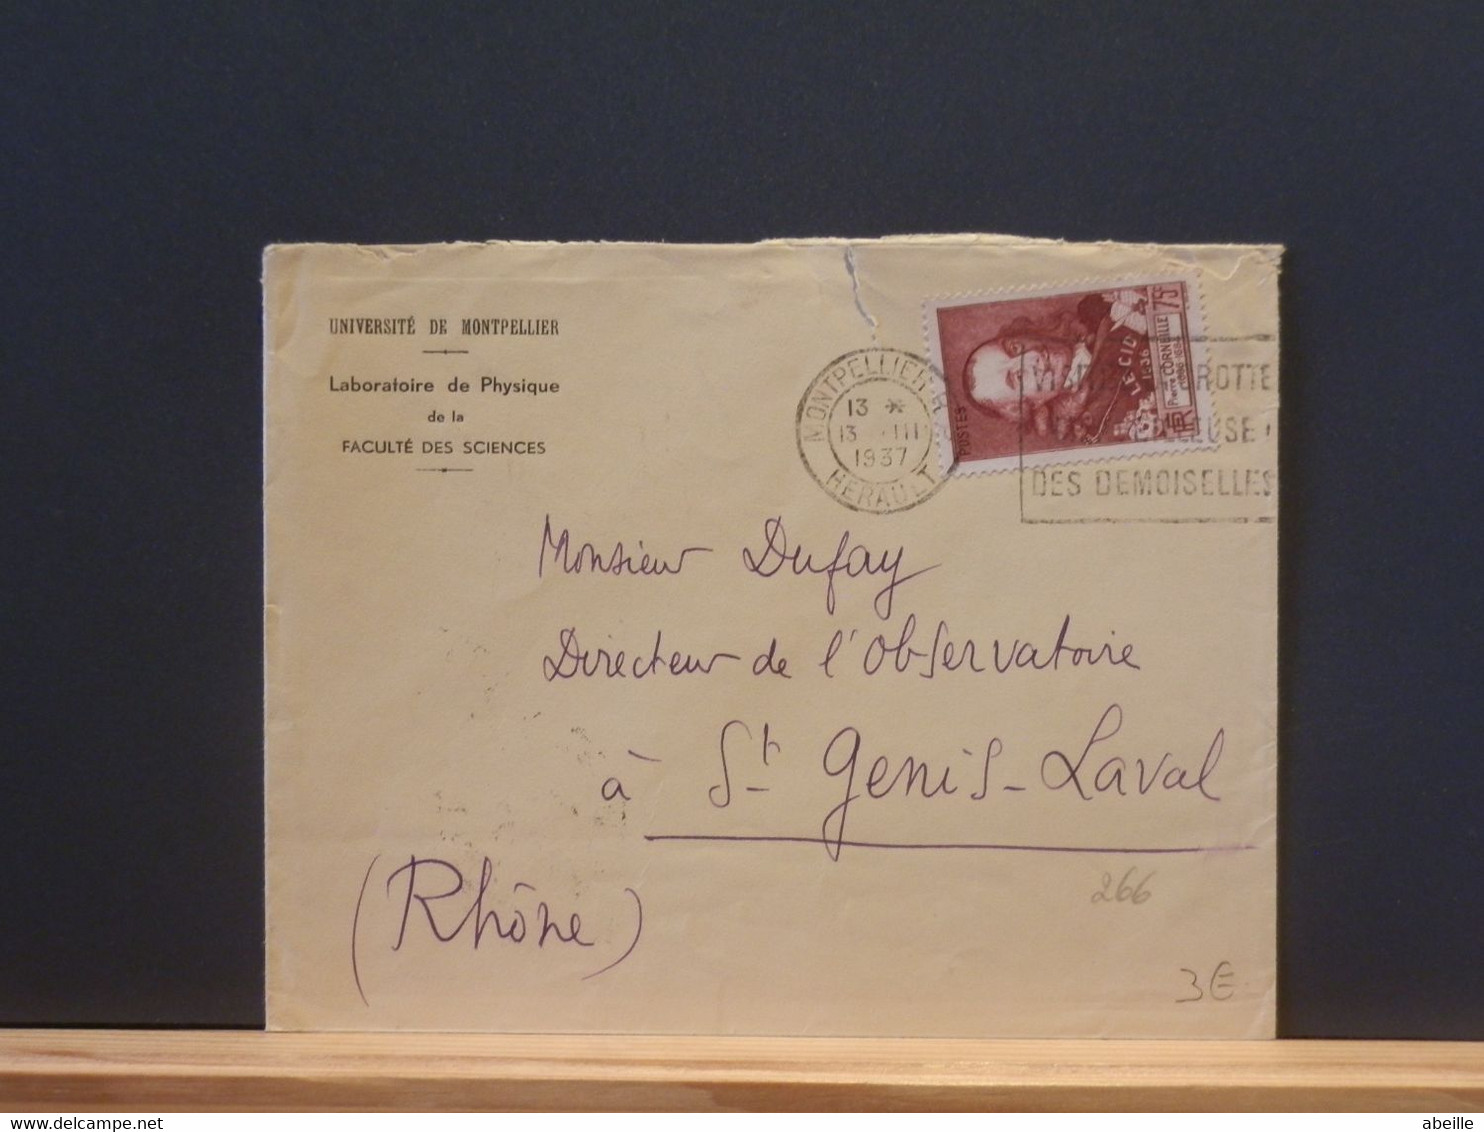 UNIVERSITÉ DE MONTPELLIER
Laboratoire de Physique
de la
FACULTÉ DES SCIENCES
MONTPELLIER
13 *
13 III
1937
HERAULT
POSTES
LE CID
1636
Pierre CORNEILLE
75c
RF
GROTTE
DES DEMOISELLES
Monsieur Dufay
Directeur de l'Observatoire
à St Genis-Laval
(Rhône)
266
3€
abeille